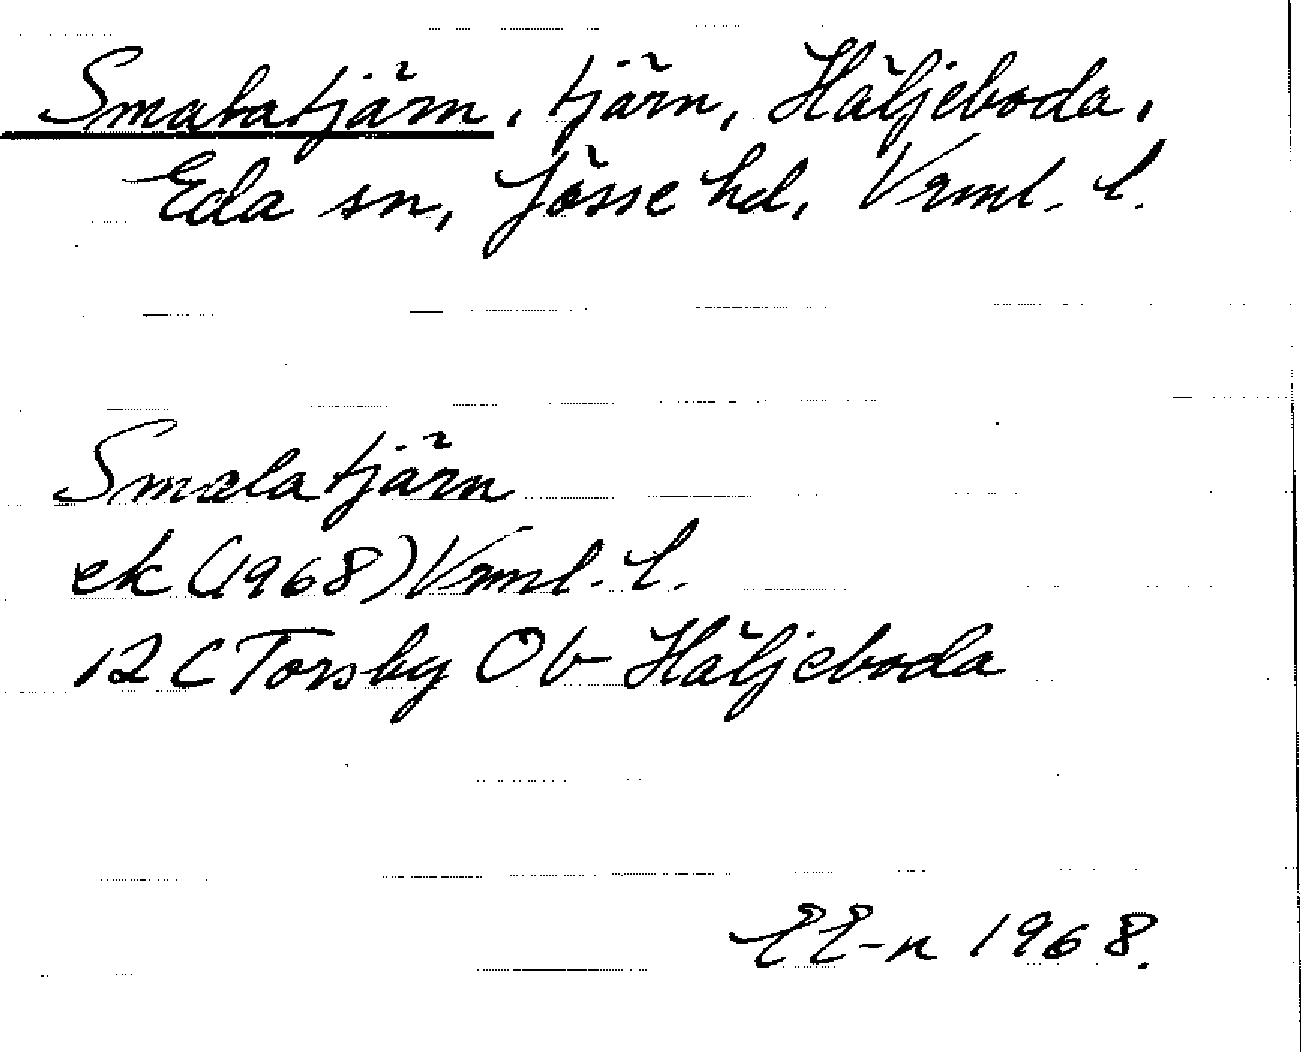 Smalatjärn, tjärn, Häljeboda,
Eda sn, Jösse hd, Vrml. l.
Smalatjärn
ek (1968) Vrml. l.
12 C Torsby Ob Häljeboda
EE-n 1968.